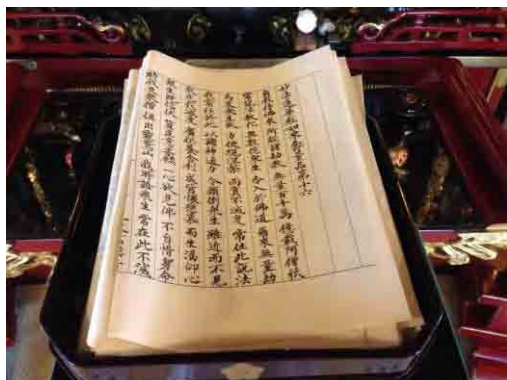 妙法蓮華經如來壽量品第十六
自我得佛來 所經諸劫數 無量百千萬 億載阿僧祇
常說法教化 無數億衆生 令入於佛道 爾來無量劫
爲度衆生故 方便現涅槃 而實不滅度 常住此說法
我常住於此 以諸神通力 令顚倒衆生 雖近而不見
衆見我滅度 廣供養舍利 咸皆懷戀慕 而生渴仰心
衆生旣信伏 質直意柔軟 一心欲見佛 不自惜身命
時我及衆僧 俱出靈鷲山 我時語衆生 常在此不滅